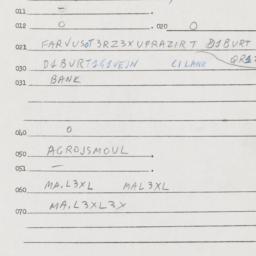 011 —
012 0 . 020 0
021 FARVUSOT3RZ3XUPRAZIRT D1BURT
030 D1BURT1G1VEJN CILANK
031 BANK
040 0
050 AGROJSMOUL
051 —
060 MA,L3XL MAL3XL
070 MA,L3XL3X